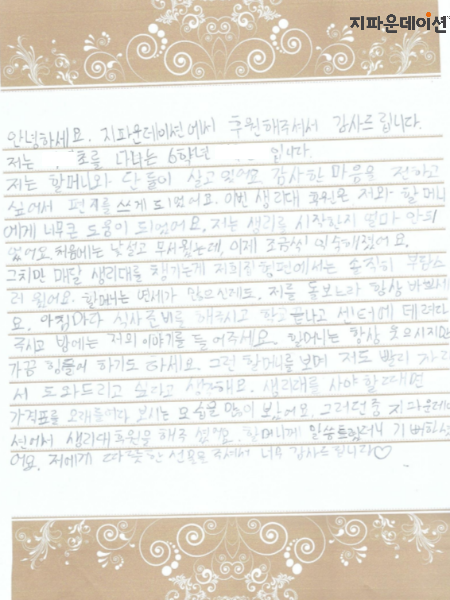 지파운데이션
안녕하세요. 지파운데이션에서 후원해주셔서 감사드립니다.
저는 . 초를 다니는 6학년 입니다.
저는 할머니와 단 둘이 살고있어요. 감사한 마음을 전하고
싶어서 편지를 쓰게 되었어요. 이번 생리대 후원은 저와 할머니
에게 너무큰 도움이 되었어요. 저는 생리를 시작한지 얼마 안되
었어요. 처음에는 낯설고 무서웠는데, 이제 조금씩 익숙해졌어요.
그치만 매달 생리대를 챙기는게 저희집 형편에서는 솔직히 부담스
러웠어요. 할머니는 연세가 많으신데도, 저를 돌보느라 항상 바쁘세
요. 아침마다 식사준비를 해주시고 학교끝나고 센터에 데려다
주시고 밤에는 저의 이야기를 들어주세요. 할머니는 항상 웃으시지만
가끔 힘들어 하기도 하세요. 그런 할머니를 보며 저도 빨리 자라
서 도와드리고 싶다고 생각해요. 생리대를 사야 할 때면
가격표를 오래들여다 보시는 모습을 많이 봤어요. 그러던중 지파운데이
션에서 생리대후원을 해주셨어요. 할머니께 말씀드렸더니 기뻐하셨
어요. 저에게 따뜻한 선물을 주셔서 너무 감사드립니다♡